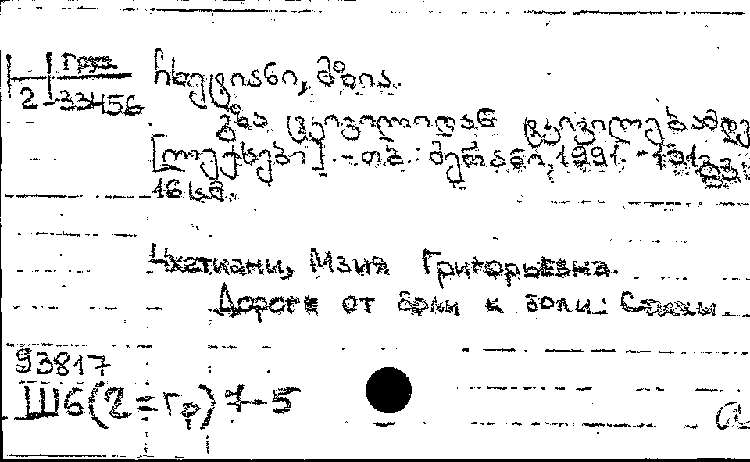 Груз
2-33456
ჩხეტიანი, მზია.
გზა ტკივილიდან ტკივილებამდე
[ლექსები]. - თბ.: მერანი, 1991. - 131გვ;
16 სმ.
Чхетиани, Мзия Григорьевна.
Дорога от боли к боли: Стихи.
93817
Ш6(2=Гр)7-5